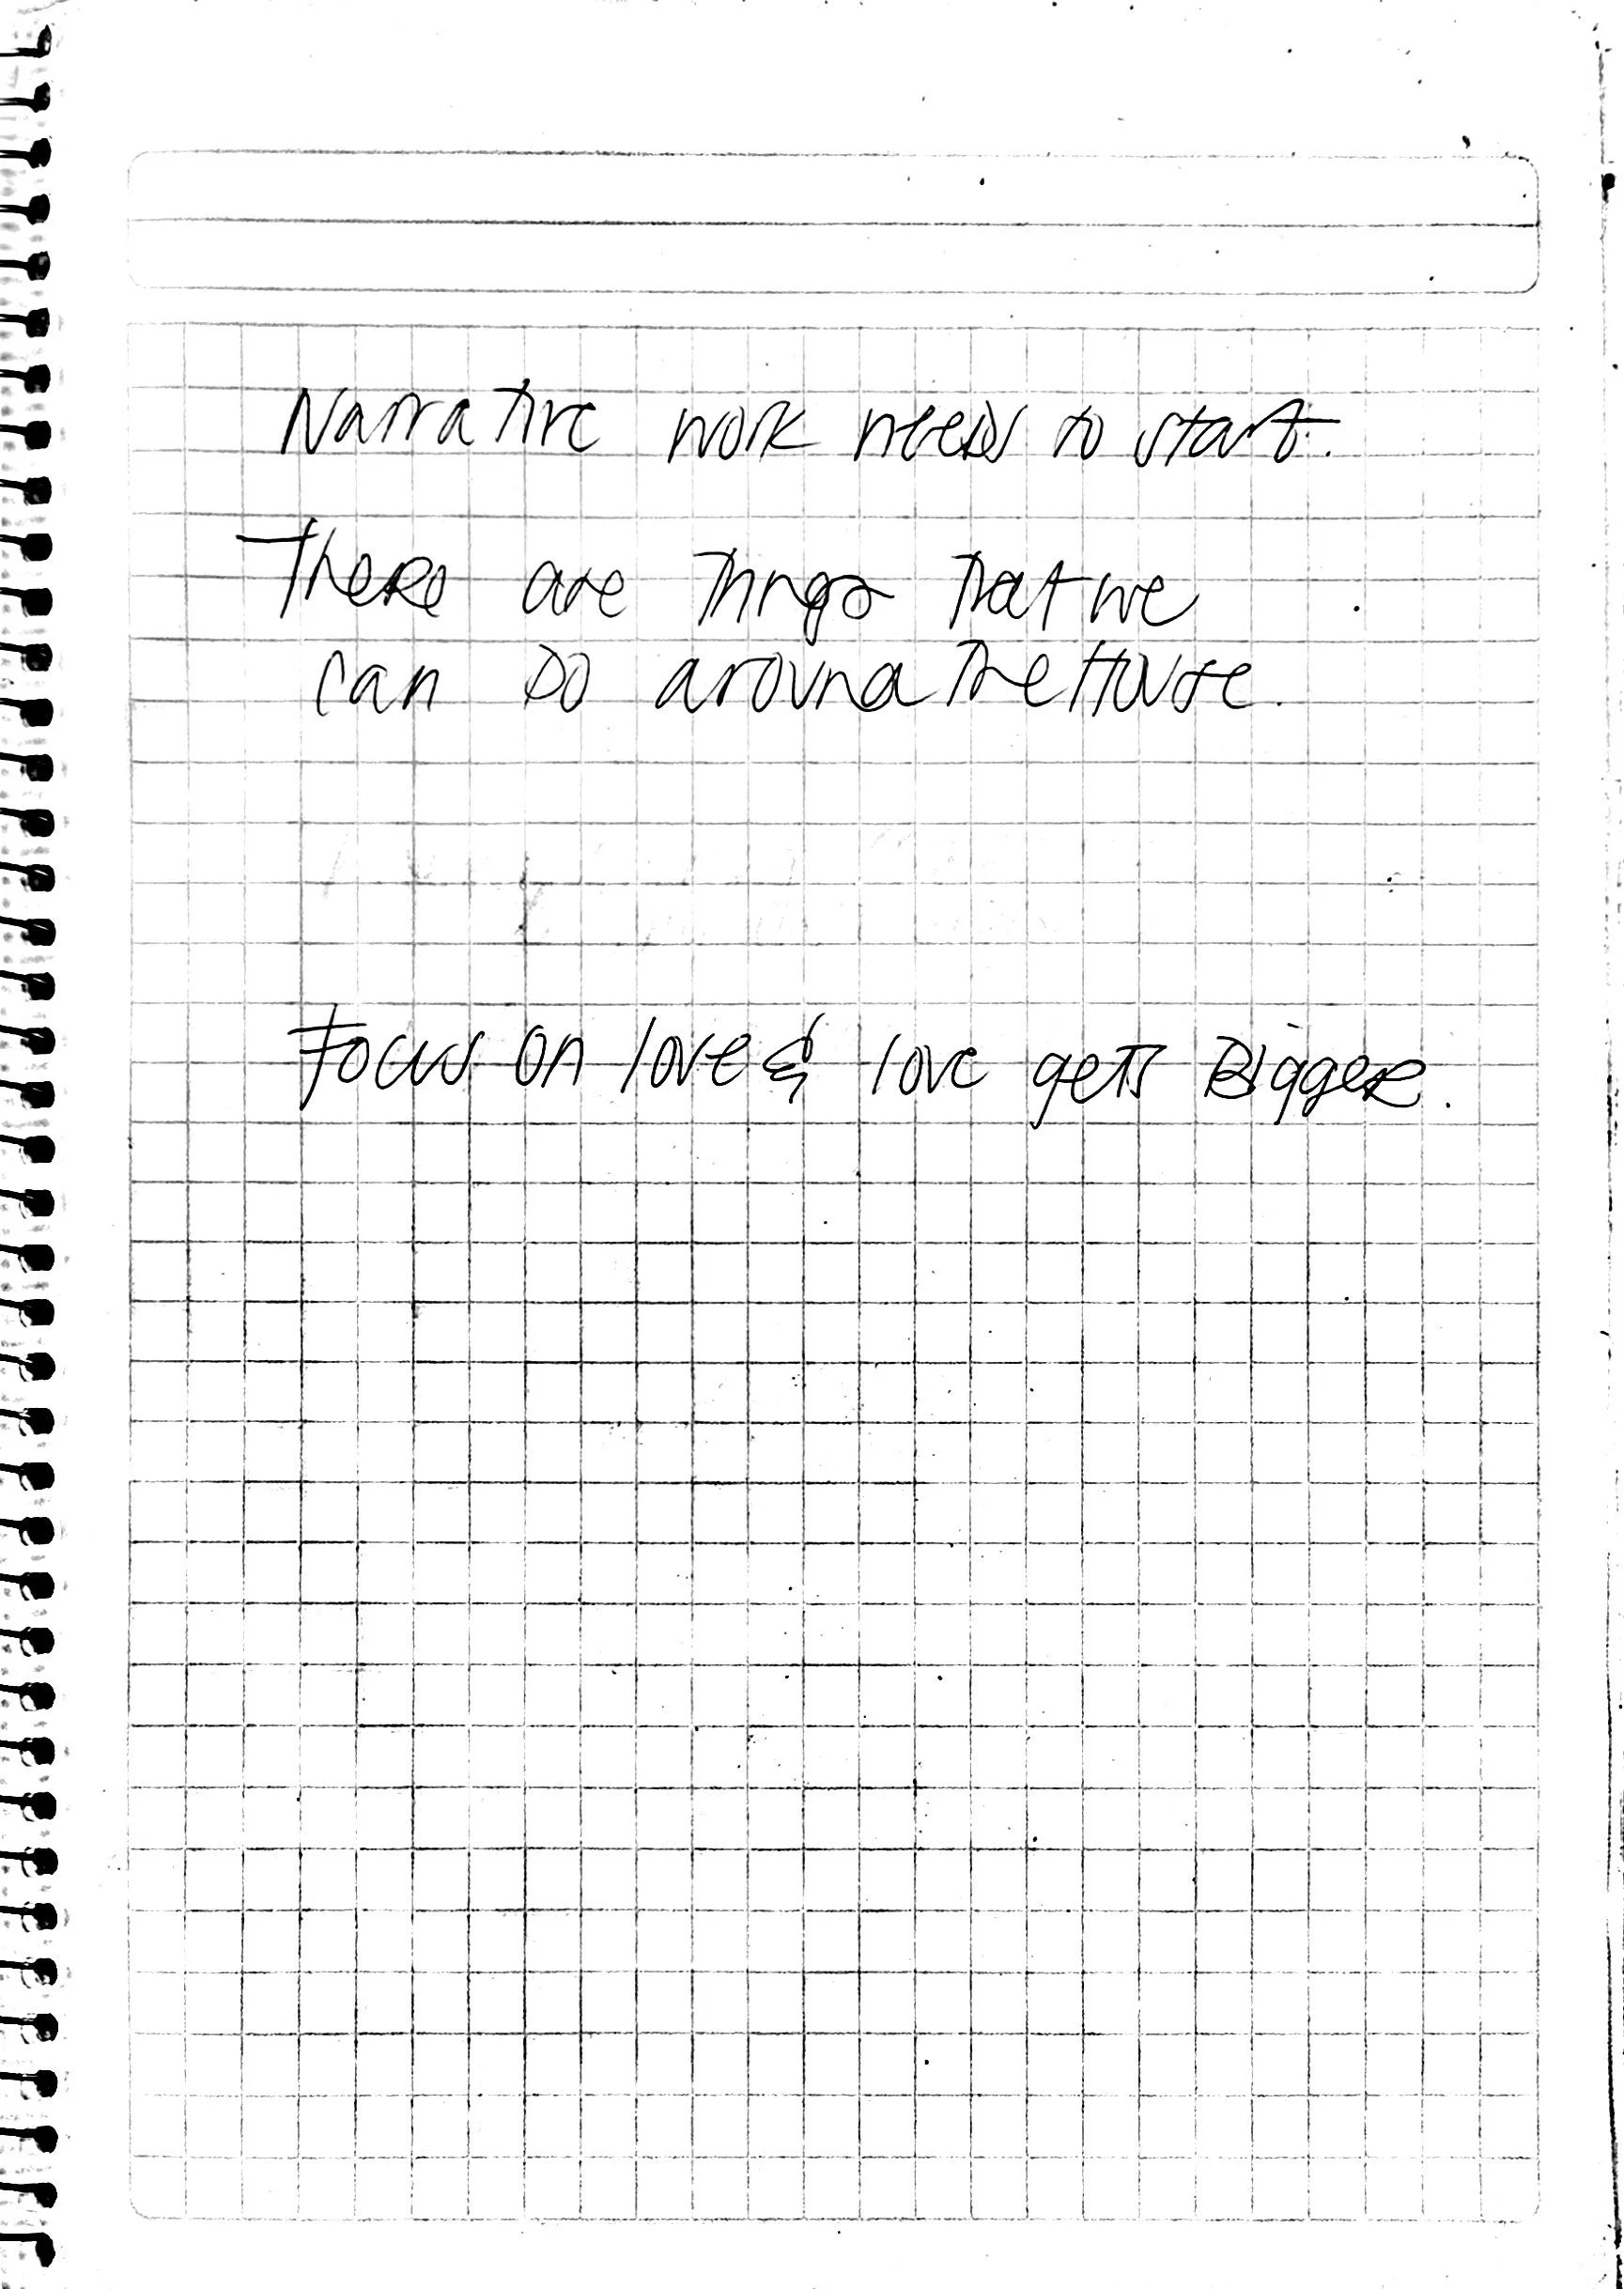 Narrative work needs to start.
There are things that we
can do around the House.
Focus on love & love gets Bigger.